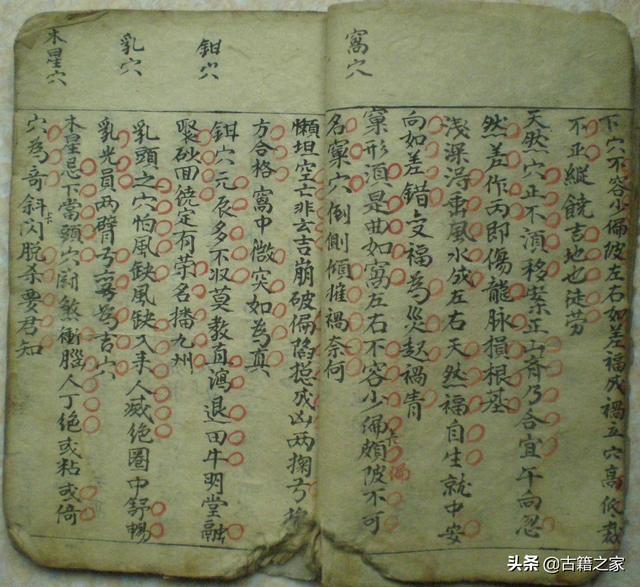 窩穴
下穴不容少偏陂左右如差福成禍立穴高低裁
不正縱饒吉地也徒劳
天然穴正不湏移案正山奇乃合宜午向忽
然差作丙即傷龍脉損根基
浅深淂乘風水成左右天然福自生就中安
向如差錯变福為災起禍青
窠形湏是曲如窩左右不容少偏頗陂不可
偏
名窠穴倒側傾摧禍奈何
鉗穴
乳穴
木星穴
懶坦空亡非去吉崩破偏陷揔成凶两掬弓
方合格窩中微突如為真
鉗穴元辰多不収莫教直瀉退田牛明堂融
聚砂回饒定有芽名播九州
乳頭之穴怕風缺風缺入手人滅绝圈中舒暢
乳光員两臂弓弯為吉穴
木星忌下當頭穴鬪煞衝腦人丁绝或粘或倚
穴為奇斜闪脱杀要君知
头条 @古籍之家